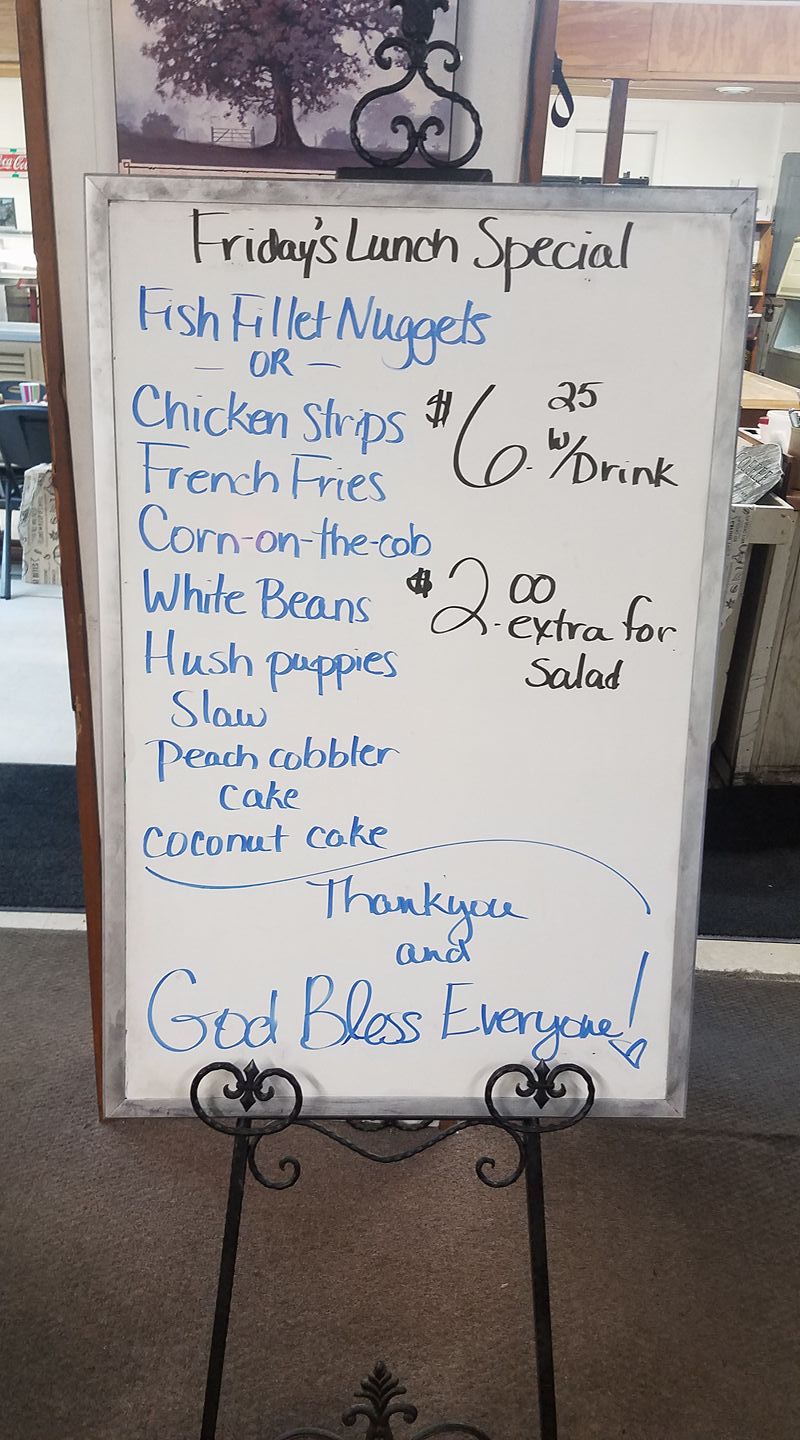 Friday's Lunch Special
Fish Fillet Nuggets
— OR —
Chicken Strips
$6.25 w/Drink
French Fries
Corn-on-the-cob
White Beans
$2.00 extra for
Salad
Hush puppies
Slaw
Peach cobbler
cake
coconut cake
Thankyou
and
God Bless Everyone!